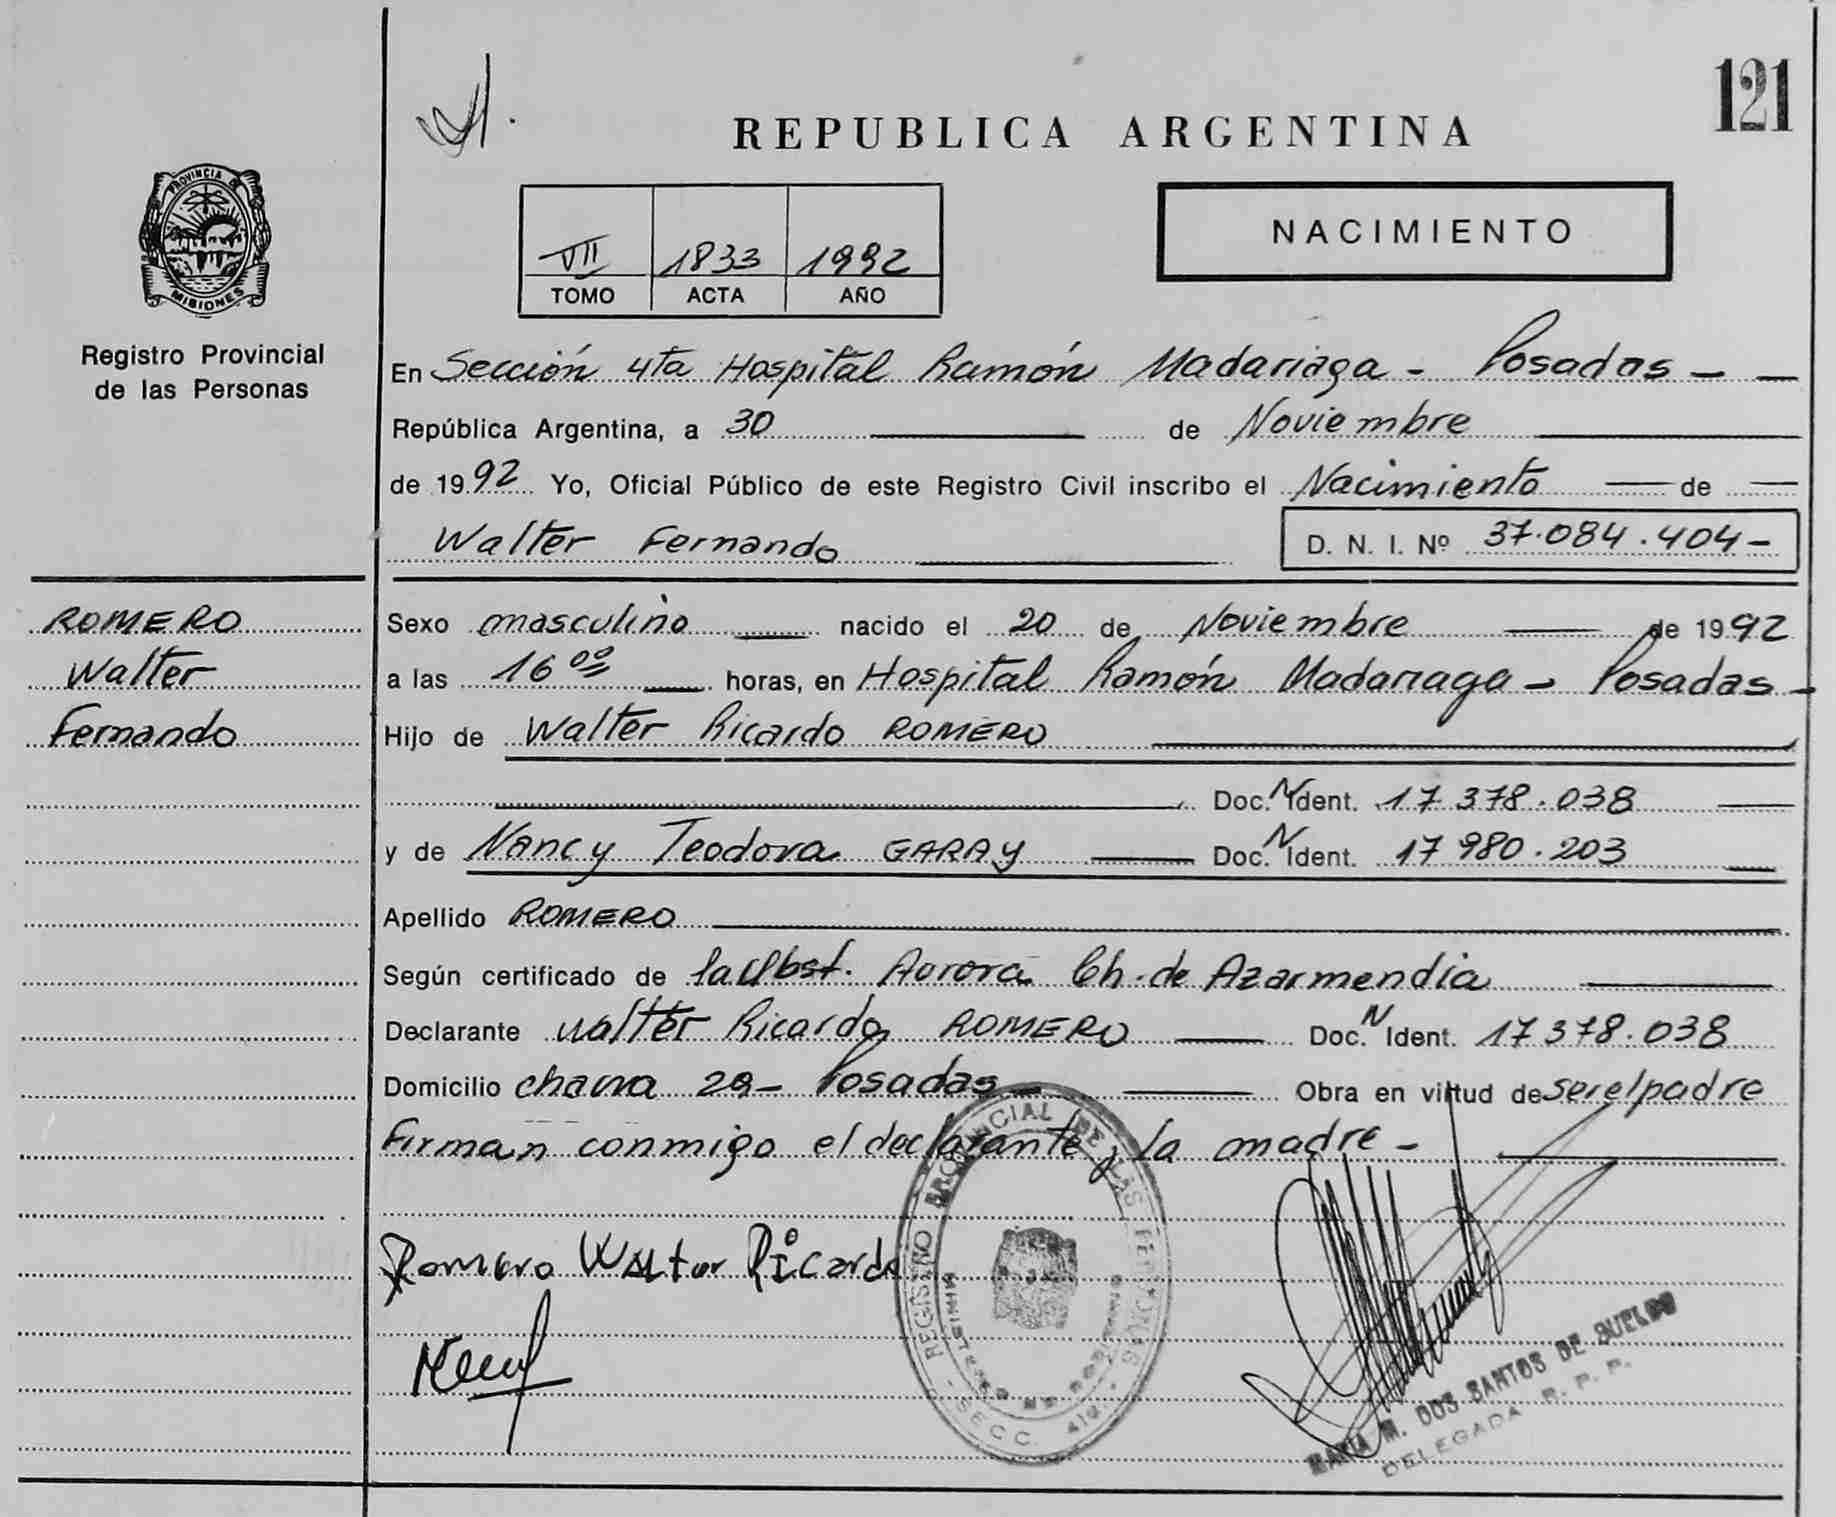 121
REPUBLICA ARGENTINA
PROVINCIA DE
MISIONES
Registro Provincial
de las Personas
NACIMIENTO
VII 1833 1992
TOMO ACTA AÑO
En Sección 4ta Hospital Ramón Madariaga - Posadas - -
República Argentina, a 30 de Noviembre
de 1992 Yo, Oficial Público de este Registro Civil inscribo el Nacimiento de
Walter Fernando D. N. I. Nº 37.084.404-
ROMERO
Walter
Fernando
Sexo masculino nacido el 20 de Noviembre de 1992
a las 16 00 horas, en Hospital Ramón Madariaga - Posadas -
Hijo de Walter Ricardo ROMERO
Doc. N Ident. 17 378.038
y de Nancy Teodora GARAY Doc. N Ident. 17 980.203
Apellido ROMERO
Según certificado de la Obst. Aurora Ch. de Azarmendia
Declarante Walter Ricardo ROMERO Doc. N Ident. 17 378.038
Domicilio chacra 29- Posadas - Obra en virtud de ser el padre
Firman conmigo el declarante y la madre -
Romero Walter Ricardo
REGISTRO PROVINCIAL DE LAS PERSONAS
SECC. 4ta.
MARIA M. DOS SANTOS DE BUELDO
DELEGADA R. P. P.